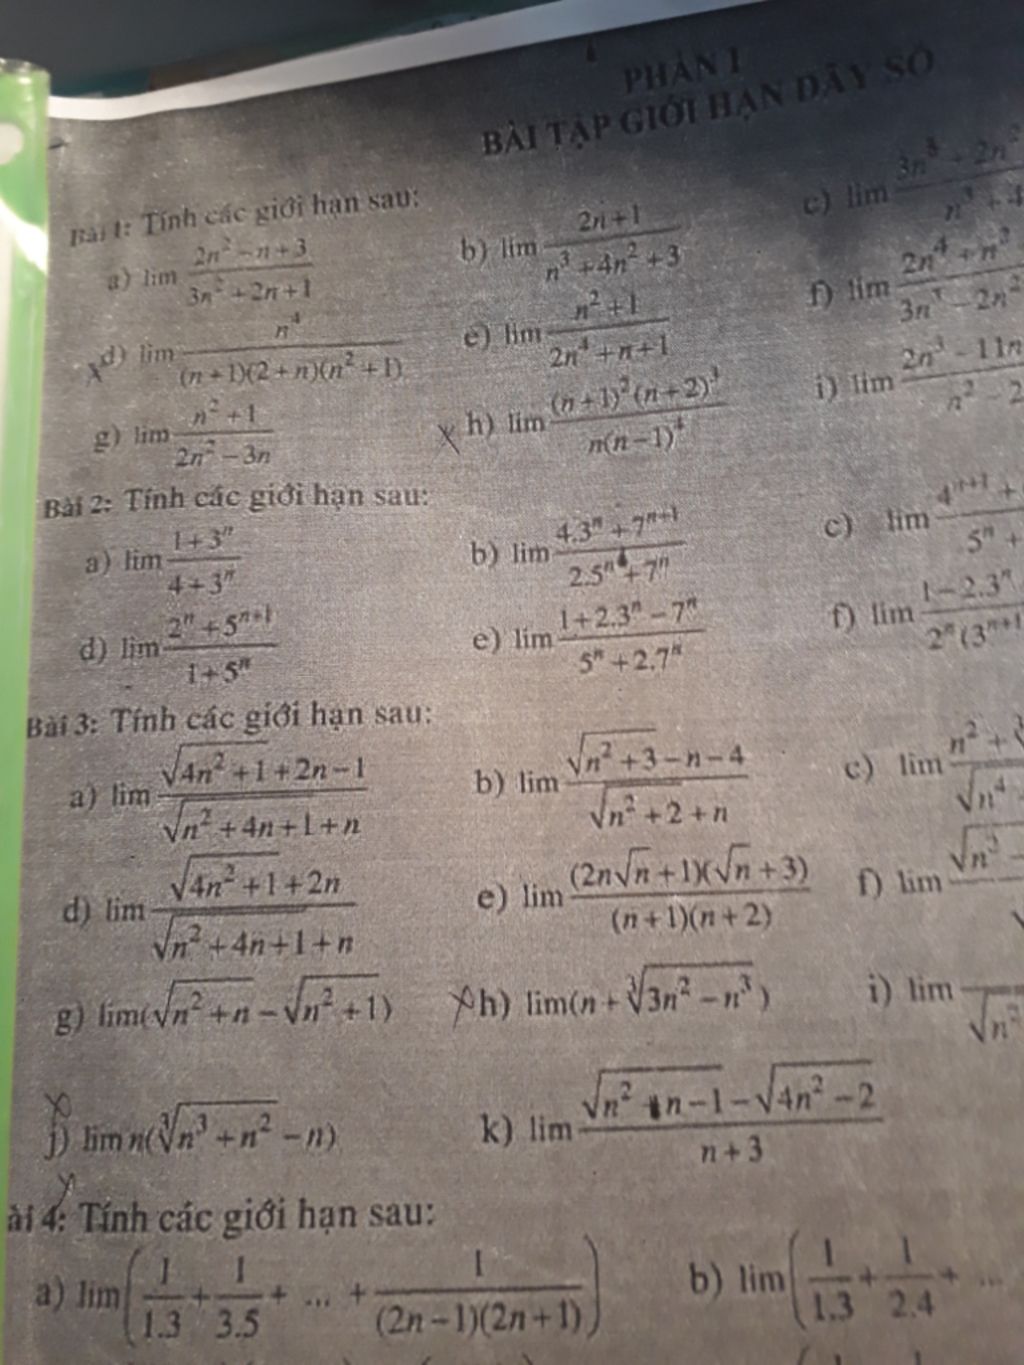 PHẦN I
BÀI TẬP GIỚI HẠN DÃY SỐ
Bài 1: Tính các giới hạn sau:
a) lim (2n² - n + 3)/(3n² + 2n + 1) b) lim (2n + 1)/(n³ + 4n² + 3) c) lim
d) lim n⁴/((n + 1)(2 + n)(n² + 1)) e) lim (n² + 1)/(2n⁴ + n + 1) f) lim
g) lim (n² + 1)/(2n² - 3n) h) lim ((n + 1)²(n + 2)³)/(n(n - 1)⁴) i) lim
Bài 2: Tính các giới hạn sau:
a) lim (1 + 3ⁿ)/(4 + 3ⁿ) b) lim (4.3ⁿ + 7ⁿ⁺¹)/(2.5ⁿ + 7ⁿ) c) lim
d) lim (2ⁿ + 5ⁿ⁺¹)/(1 + 5ⁿ) e) lim (1 + 2.3ⁿ - 7ⁿ)/(5ⁿ + 2.7ⁿ) f) lim (1 - 2.3ⁿ)/(2ⁿ(3ⁿ⁺¹
Bài 3: Tính các giới hạn sau:
a) lim (√(4n² + 1) + 2n - 1)/(√(n² + 4n + 1) + n) b) lim (√(n² + 3) - n - 4)/(√(n² + 2) + n) c) lim
d) lim (√(4n² + 1) + 2n)/(√(n² + 4n + 1) + n) e) lim ((2n√n + 1)(√n + 3))/((n + 1)(n + 2)) f) lim
g) lim(√(n² + n) - √(n² + 1)) h) lim(n + ∛(3n² - n³)) i) lim
j) lim n(∛(n³ + n²) - n) k) lim (√(n² + n - 1) - √(4n² - 2))/(n + 3)
ài 4: Tính các giới hạn sau:
a) lim(1/1.3 + 1/3.5 + ... + 1/((2n - 1)(2n + 1))) b) lim(1/1.3 + 1/2.4 + ...